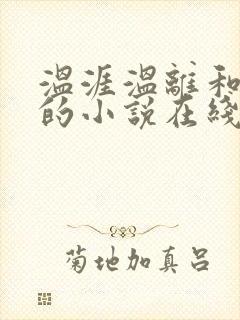 温涯温離和
的小説在綫
菊地加真呂